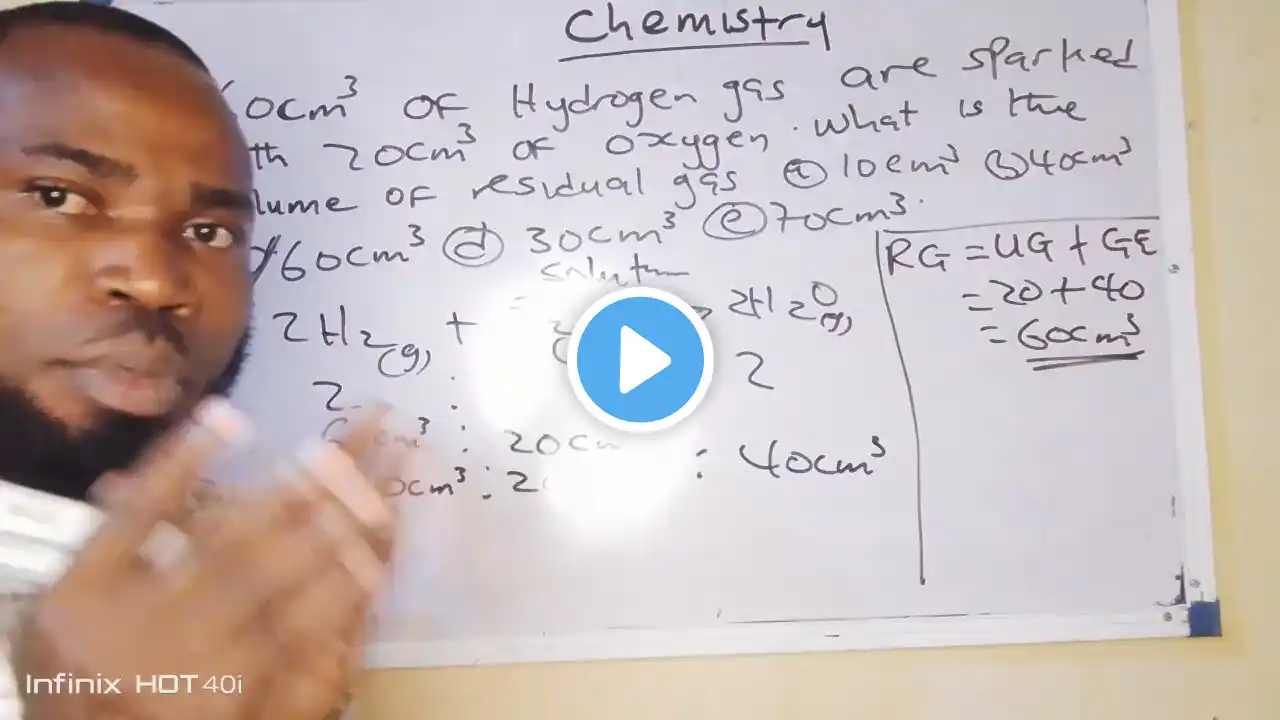 Chemistry
0cm³ of Hydrogen gas are sparked
th 20cm³ of oxygen. What is the
lume of residual gas (a) 10cm³ (b) 40cm³
60cm³ (d) 30cm³ (e) 70cm³.
Solution
2H₂(g) + → 2H₂O(g)
2 : 2
cm³ : 20cm
0cm³ : 2 : 40cm³
RG = UG + GE
= 20 + 40
= 60cm³
Infinix HOT 40i